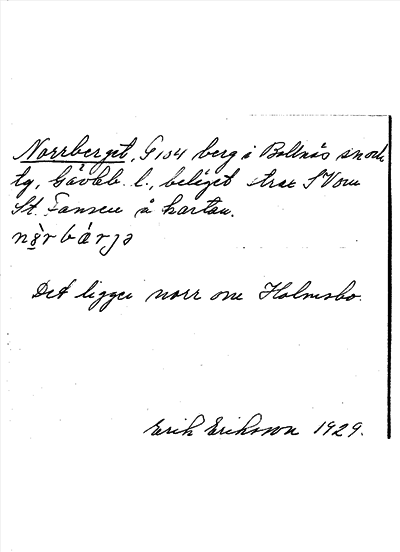 Norrberget, G 104 berg i Bollnäs snock
tg, Gävleb. l., beläget strax S Vom
St. Fansen å kartan.
nǫ̀rbárjə
Det ligger norr om Holmsbo.
Erik Eriksson 1929.